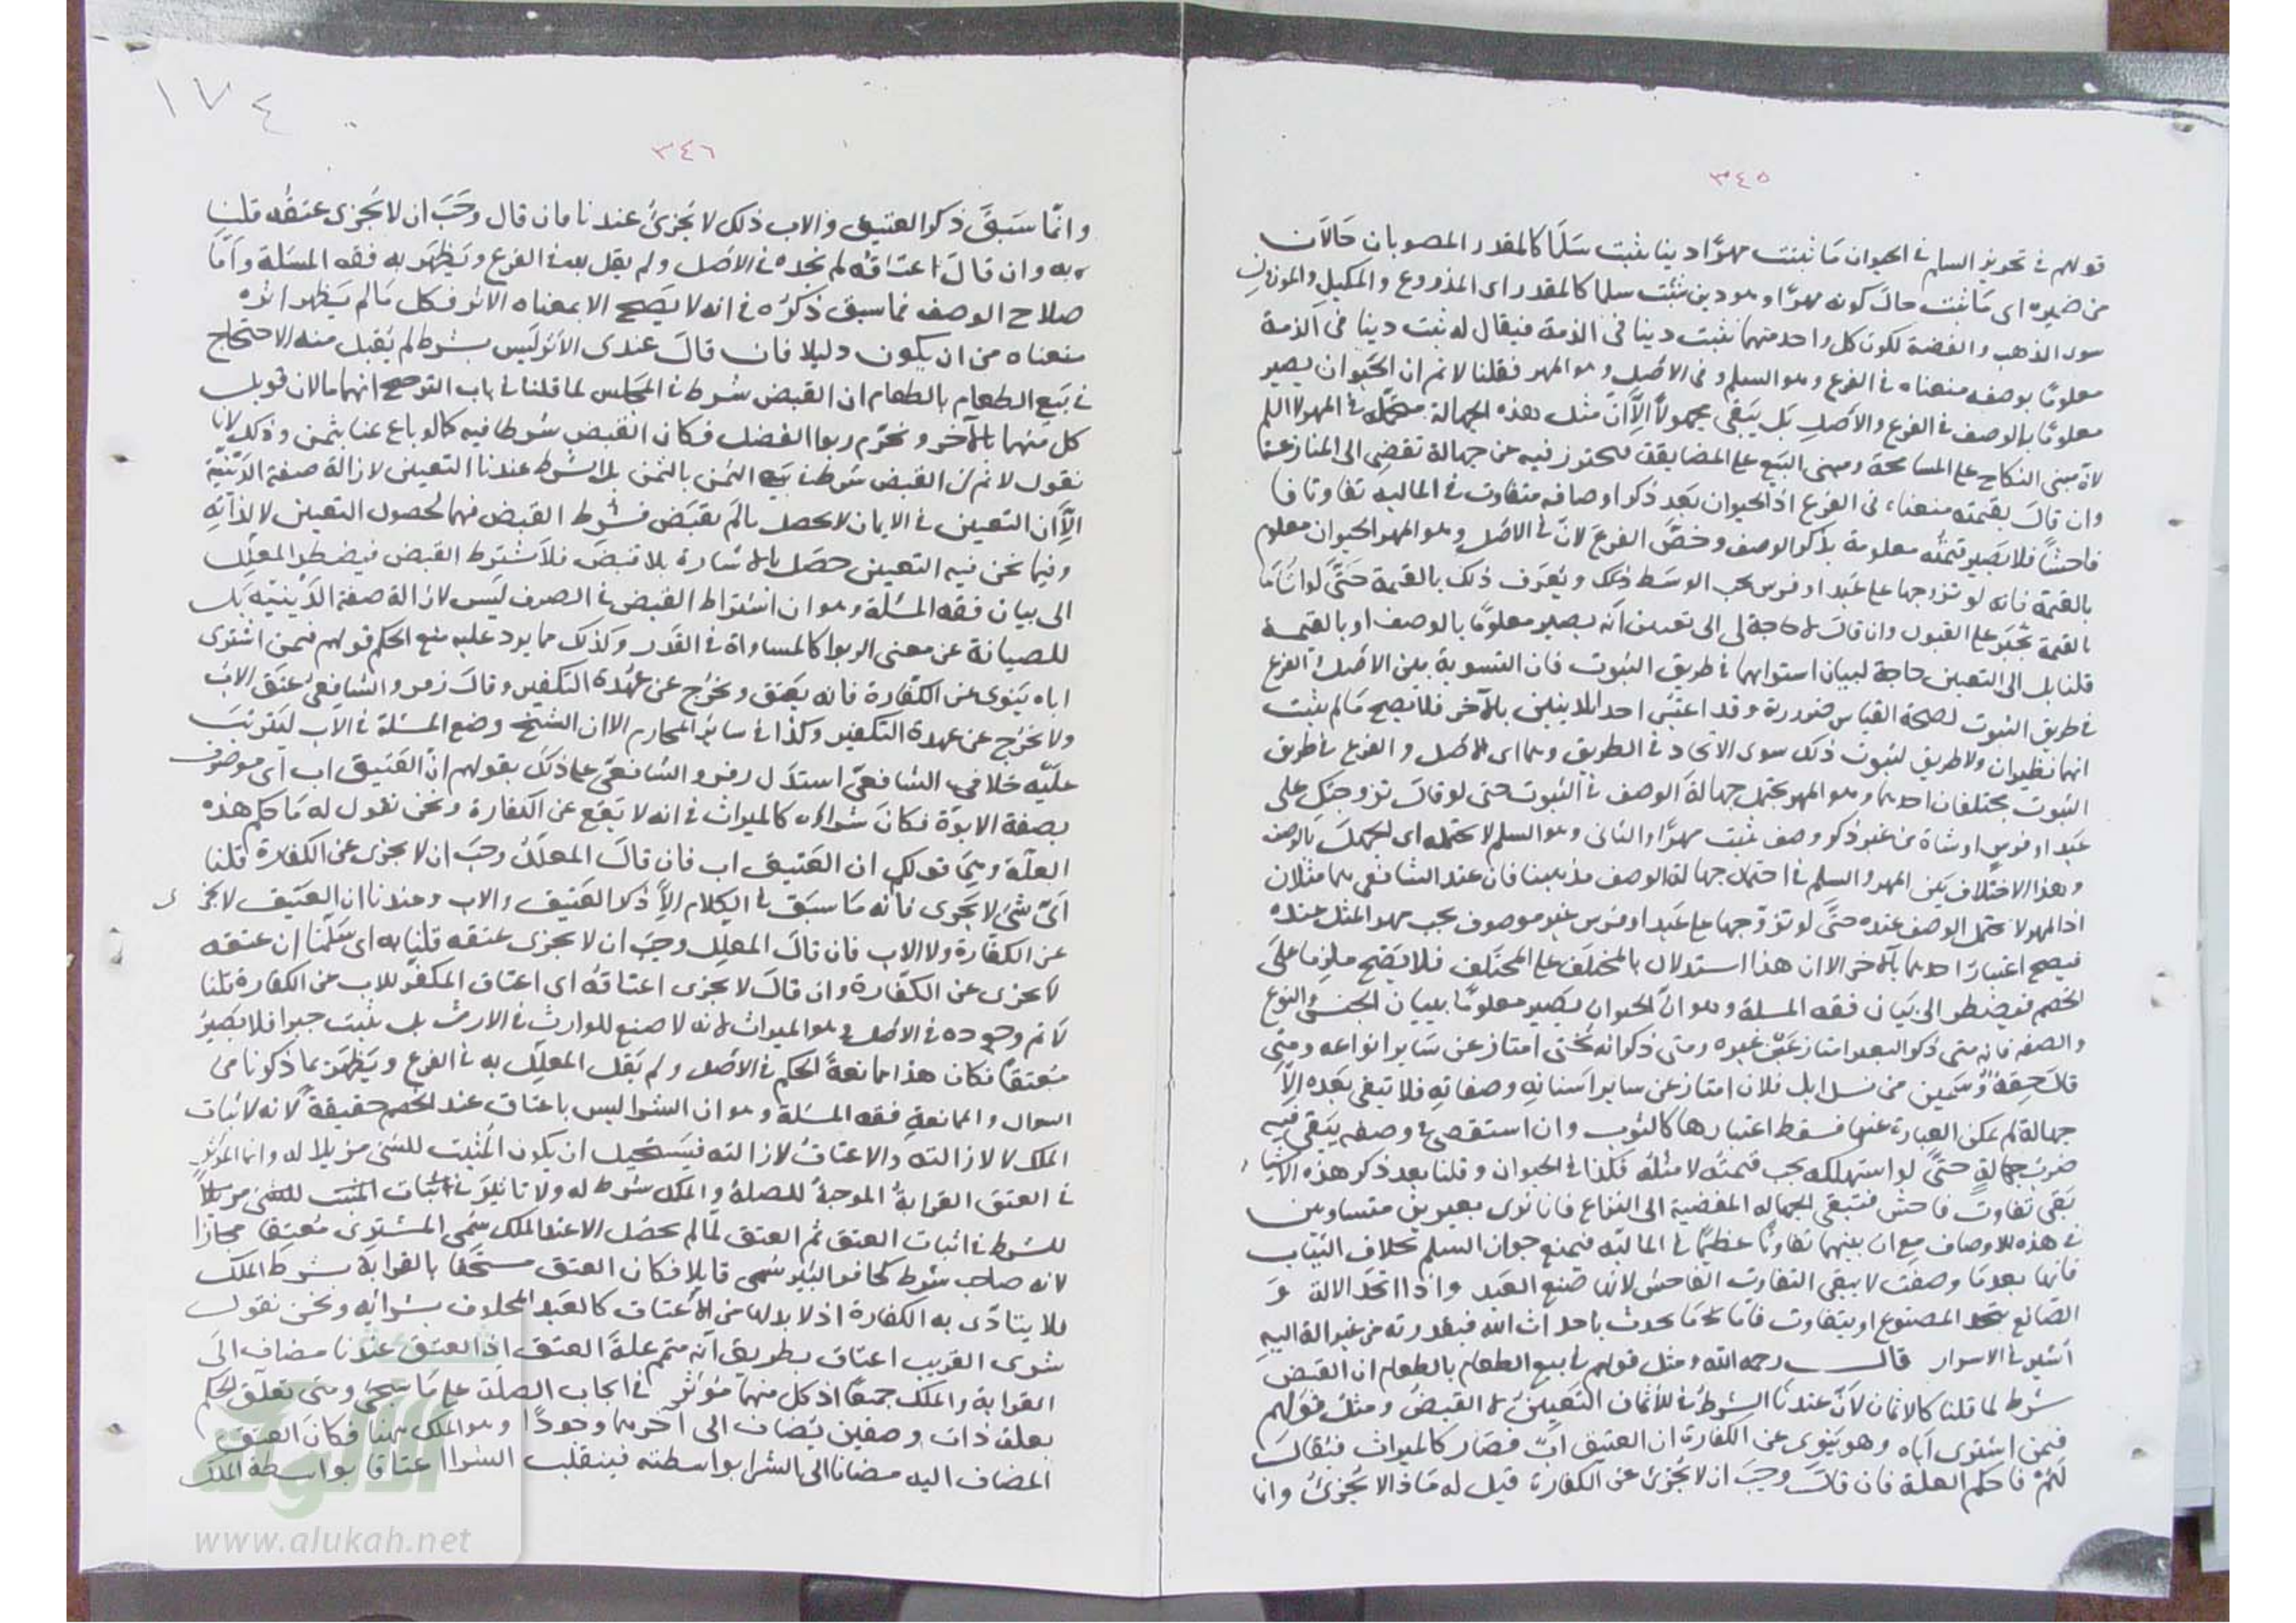 ٣٤٥
قولهم في تجويز السلم في الحيوان ما يثبت مهرًا دينا يثبت سَلَمًا كالمقدر المصوبان حَالَان
من ضميره اى مَا يثبت حالَ كونه مهرًا وهو دين يثبت سلما كالمقدر اى المذروع والمكيل والموزون
سوى الذهب والفضة لكون كل واحد منهما يثبت دينا في الذمة فيقال له يثبت دينا في الذمة
معلومًا بوصفه منعناه في الفرع وهو السلم وفي الاصل وهو المهر فقلنا لا نم ان الحيوان يصير
معلومًا بالوصف في الفرع والاصل بَل يَبقى مجهولًا اِلّا اَنّ مثل هذه الجهالة متحملة في المهر لا السلم
لانّ مبنى النكاح على المسامحة ومبنى البَيع على المضايقة فيحترز فيه عن جهالة تفضى الى المنازعة
وان قال بقيمته منعناه في الفرع اذ الحيوان بَعد ذكر اوصافه متفاوت في المالية تفاوتا
فاحشًا فلا يَصير قيمتُه معلومة بذكر الوصف وخصَّ الفرعَ لانّ في الاصل وهو المهر الحيوان معلوم
بالقيمة فانه لو تزوجها على عَبد او فرس يجب الوسَط وذلك ويُعرَف ذلك بالقيمة حَتَّى لو اتاهَا
بالقيمة تُجبَر على القبول وان قال لا حاجة لى الى تعيين اَنّه يصير معلومًا بالوصف او بالقيمة
قلنا بل الى التعيين حاجة لبيان استوائهما في طريق الثبوت فان التسوية بين الاصل والفرع
في طريق الثبوت لصحة القياس ضرورية وقد اعتُبِر احد الدينين بالآخر فلا يصح مَا لم يثبت
انهما نظيران ولا طريق لثبوت ذلك سوى الاتحاد في الطريق وهما اى الاصل والفرع في طريق
الثبوت مختلفان احدهما وهو المهر يحتمل جهالة الوصف في الثبوت حتى لو قال تزوجتك على
عَبد او فرس او شاة من غير ذكر وصف يثبت مهرًا والثانى وهو السلم لا يحتمله اى الجهل بالوصف
وهذا الاختلاف بين المهر والسلم في احتمال جهالة الوصف مذهبنا فان عند الشافعى هما مثلان
اذ المهر لا يحتمل الوصف عنده حتَّى لو تزوّجها على عَبد او فرس غير موصوف يجب مهر المثل عنده
فيصح اعتبار احدهما بالآخر الا ان هذا استدلال بالمختلَف على المختَلَف فلا يَصِح ملزما على
الخصم فيضطر الى بَيان فقه المسلة وهو انّ الحيوان يصير معلومًا ببيان الجنس والنوع
والصفة فانه متى ذكر البعير امتاز عَن غيره ومتى ذكر انه بُختى امتاز عن سَاير انواعه ومتى
قال حِقة سمين من نسل ابل فلان امتاز عن ساير اسنانه وصفاته فلا تبقى بَعده اِلّا
جهالة لم يمكن العبارة عنها فسقط اعتبارها كالثوب وان استقصى في وصفه يَبقى فيه
ضربُ جهالةٍ حتَّى لو استهلكه يجب قيمتُه لا مثلُه فكذا في الحيوان وقلنا بعد ذكر هذه الاشيا
بَقى تفاوت فاحش فتبقى الجهالة المفضية الى النزاع فانا نرى بعيرين متساويين
في هذه الاوصاف مع ان بينهما تفاوتًا عظيمًا في المالية فيمنع جواز السلم بخلاف الثياب
فانها بعدمَا وصفت لا يبقى التفاوت الفاحش لانها صُنع العَبد واذا اتحد الالة وَ
الصّانع يتحد المصنوع او يتفاوت فامّا مَا يحدث باحداث الله فبقدرته من غير الة اليه
اُشير في الاسرار قال رحمه الله ومثل قولهم في بيع الطعام بالطعام ان القبض
شرط لما قلنا كالاثمان لانّ عندنا الشرط في الاثمان التعيينُ لا القبضُ ومثل قولهم
فيمن اشترى اَباه وهو يَنوى عن الكفارة ان العتيق ابٌ فصَار كالميراث فيُقال
لهُمْ فما حكم العلة فان قال وجبَ ان لا يُجزئ عن الكفارة قيل له مَا ذا لا يُجزئُ وانما
١٧٤
٣٤٦
وانّما سَبَقَ ذكر العتيق والاب ذلك لا يُجزئ عندنا فان قال وجَبَ ان لا يُجزى عتقُه قلنا
به وان قال اعتاقُه لم نجده في الاصل ولم يقل به في الفرع ويَظهَر به فقه المسَلة وامّا
صلاح الوصف فما سبق ذكرُه في انه لا يصح الا بمعناه الاثر فكل مَا لم يَظهر اثره
منعناه من ان يكون دليلا فان قال عندى الاثر ليس بشرط لم يُقبل منه الاحتجاج
في بَيع الطعام بالطعام ان القبض شرط في المجلس لما قلنا في باب الترجيح انهما مالان قوبل
كل منهما بالآخر ويحرم ربوا الفضل فكان القبض شرطا فيه كما لو باع ثمنا بثمن وذلك لانا
نقول لا نم ان القبض شرط في بيع الثمن بالثمن بل الشرط عندنا التعيين لازالة صفة الدَّينيّة
اِلّا اَن التعيين في الاثمان لا يحصل ما لم يقبَض فشرط القبض فيهما لحصول التعيين لا لذاته
وفيما نحن فيه التعيين حصَل بالاشارة بلا قبض فلا يشترط القبض فيضطر المعلِّل
الى بيان فقه المسئلة وهو ان اشتراط القبض في الصرف ليس لازالة صفة الدَّينيّة بَل
للصيانة عن معنى الربوا كالمساواة في القدر وكذلك مما يرد عليه منع الحكم قولهم فيمن اشترى
اباه يَنوى عن الكفّارة فانه يَعتق ويخرج عن عُهدة التكفير وقال زفر والشافعىّ عتَق الاب
ولا يخرُج عن عهدة التكفير وكذا في سايرِ المحارم الا ان الشيخ وضع المسئلة في الاب ليَترتبَ
علَيه خلاف الشافعىّ استدل زفر والشافعىّ على ذلك بقولهم انّ العَتيق اب اى موصُوف
بصفة الابوّة فكان شراؤه كالميراث في انه لا يَقَع عن الكفارة ونحن نقول له مَا حكم هذه
العلّة وهى قولك ان العتيق اب فان قال المعلّل وجبَ ان لا يجزى عن الكفارة قلنا
اىّ شئ لا يَجزى فانه مَا سبَق في الكلام اِلّا ذكر العَتيق والاب وعندنا ان العَتيق لا يجزى
عن الكفارة ولا الاب فان قال المعلل وجبَ ان لا يجزى عتقه قلنا به اى سَلّمنا ان عتقه
لا يجزى عن الكفّارة وان قال لا يجزى اعتاقُه اى اعتاق المكفّر للاب عن الكفارة قلنا
لا نم وجوده في الاصل وهو الميراث لانه لا صنع للوارث في الارث بل يثبت جبرا فلا يَصير
مُعتقًا فكان هذا ممانعةً لحكم في الاصل ولم يَقل المعلّل به في الفرع ويَظهَر بما ذكرنا من
السوال والممانعة فقه المسَئلة وهو ان الشرا ليس باعتاق عند الخصم حقيقةً لانه لاثبات
الملك لا لازالته والاعتاقُ لازالته فيَستحيل ان يكون المُثبِت للشئ مزيلا له وانما المؤثر
في العتق القرابةُ الموجبةُ للصلة والملك شرط له ولا تاثيرَ
للشرط في اثبات العتق ثم العتق لما لم يحصُل الا عند الملك سُمى المشترى مُعتِقا مجازا
لانه صاحب شرط كحافر البئر سُمى قاتلا فكان العتق مستحَقا بالقرابة بشرط الملك
فلا يتادّى به الكفارة اذ لا بد لها من الاعتاق كالعَبد المحلوف بشرائِه ونحن نقول
شرى القريب اعتاق بطريق اَنّه متمم علةَ العتق اذ العتق عندنا مضاف الى
القرابة والملك جميعًا اذ كل منهما مؤثر في ايجاب الصلة على مَا يجئ ومتى تعلّق الحكم
بعلة ذات وصفين يُضاف الى آخرهما وجودًا وهو الملك ههنا فكان العتق
المضاف اليه مضافا الى الشرا بواسطته فينقلب الشرا اعتاقا بواسطة الملك
www.alukah.net